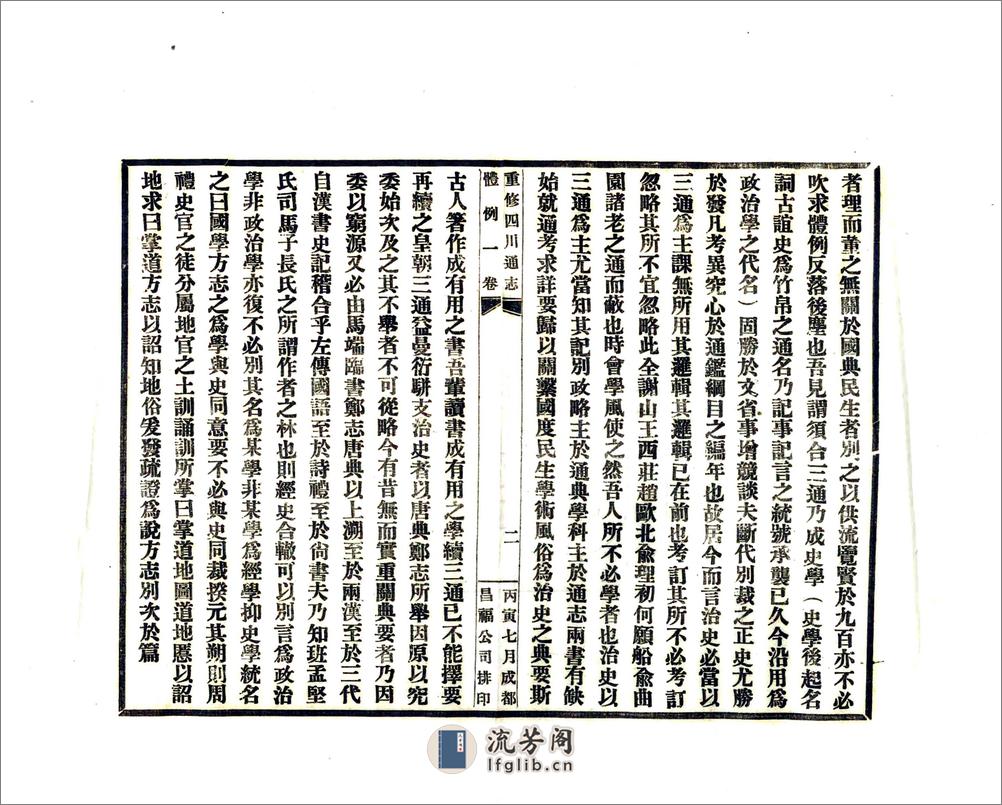 者理而董之無關於國典民生者別之以供流覽賢於九百亦不必
吹求體例反落後塵也吾見謂須合三通乃成史學（史學後起名
詞古誼史爲竹帛之通名乃記事記言之統號承襲已久今沿用爲
政治學之代名）固勝於文省事增競談夫斷代別裁之正史尤勝
於發凡考異究心於通鑑綱目之編年也故居今而言治史必當以
三通爲主課無所用其邏輯其邏輯已在前也考訂其所不必考訂
忽略其所不宜忽略此全謝山王西莊趙歐北兪理初何願船兪曲
園諸老之通而蔽也時會學風使之然吾人所不必學者也治史以
三通爲主尤當知其記別政略主於通典學科主於通志兩書有缺
始就通考求詳要歸以關繫國度民生學術風俗爲治史之典要斯
重修四川通志
體例一卷
二
丙寅七月成都
昌福公司排印
古人箸作成有用之書吾輩讀書成有用之學續三通已不能擇要
再續之皇朝三通益曼衍駢支治史者以唐典鄭志所舉因原以究
委始次及之其不舉者不可從略今有昔無而實重關典要者乃因
委以窮源又必由馬端臨書鄭志唐典以上溯至於兩漢至於三代
自漢書史記稽合乎左傳國語至於詩禮至於尙書夫乃知班孟堅
氏司馬子長氏之所謂作者之林也則經史合轍可以別言爲政治
學非政治學亦復不必別其名爲某學非某學爲經學抑史學統名
之曰國學方志之爲學與史同意要不必與史同裁揆元其朔則周
禮史官之徒分屬地官之土訓誦訓所掌曰掌道地圖道地慝以詔
地求曰掌道方志以詔知地俗爰發疏證爲說方志別次於篇
流芳阁
lfglib.cn